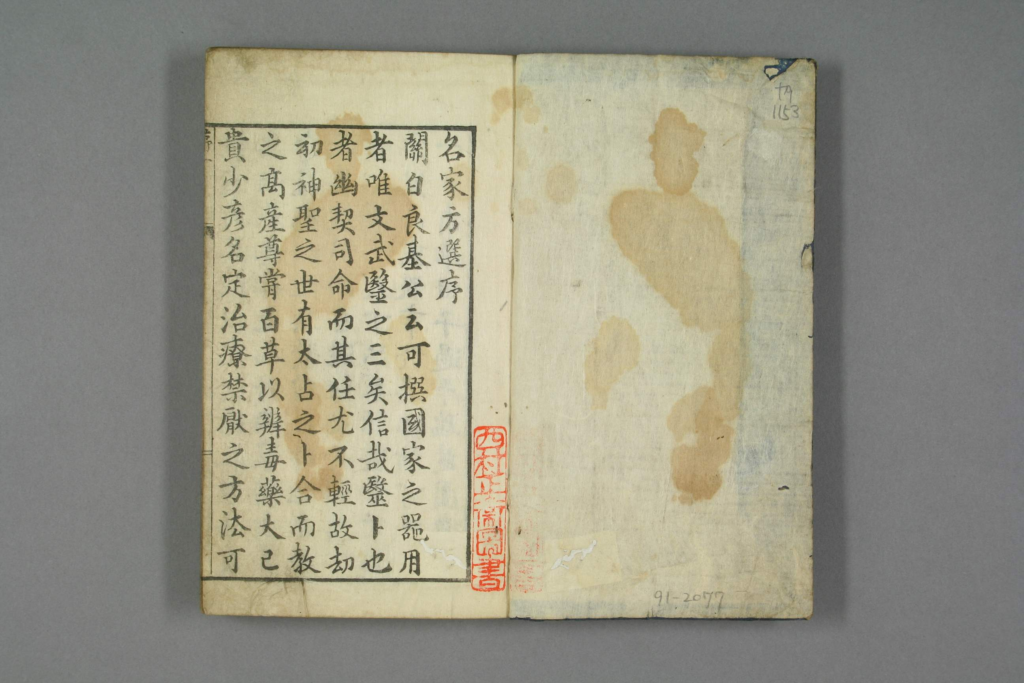 名家方選序
關白良基公云可撰國家之器用
者唯文武醫之三矣信哉醫卜也
者幽契司命而其任尤不輕故刧
初神聖之世有太占之卜合而教
之高產尊甞百草以辨毒藥大己
貴少彥名定治療禁厭之方法可
1153
91-2077